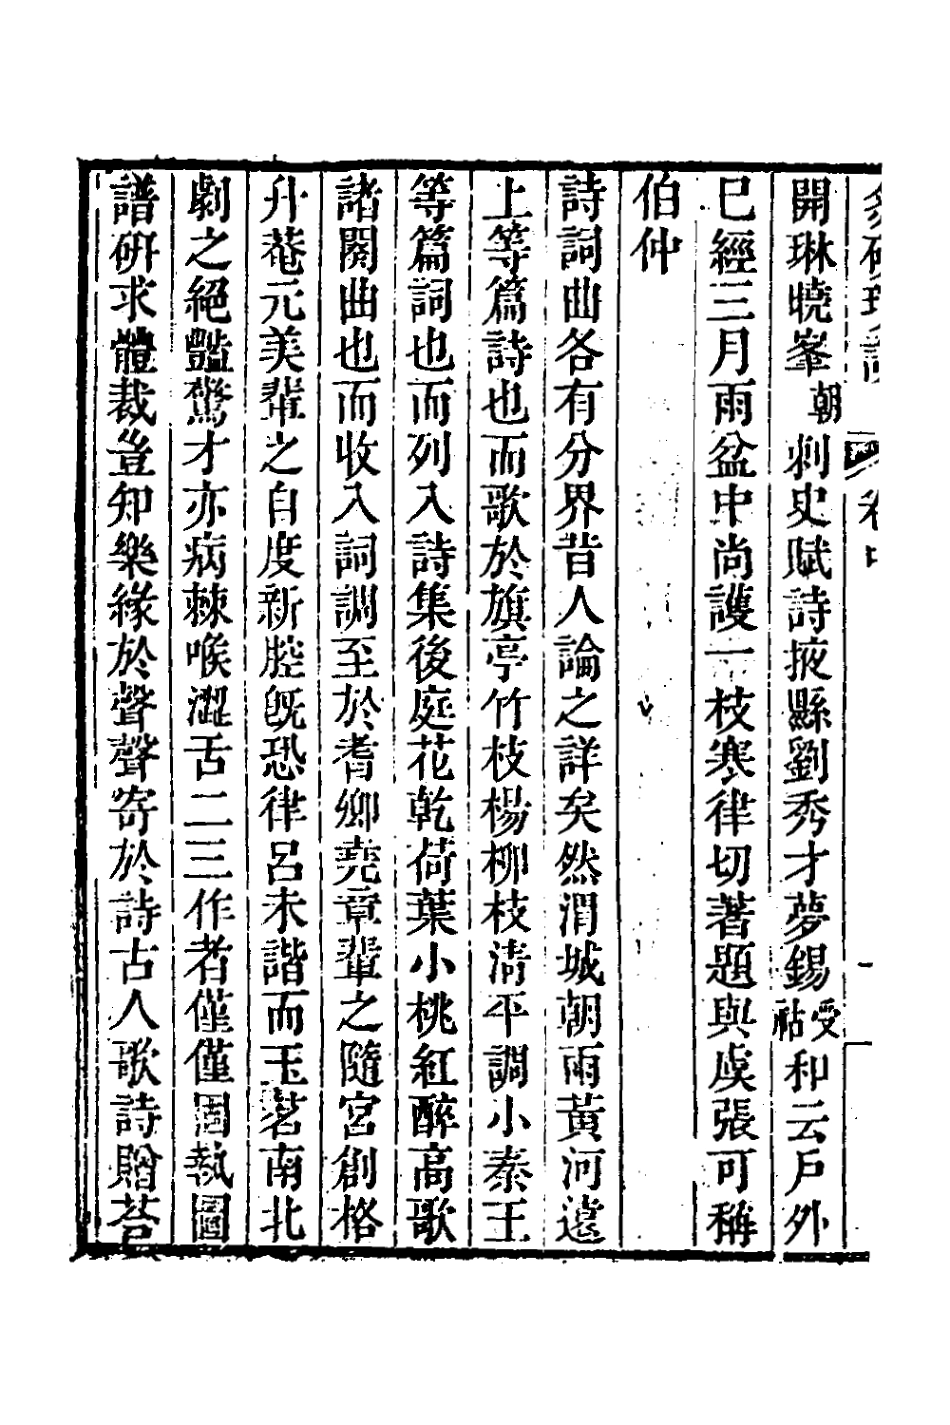 開琳曉峯朝刺史賦詩掖縣劉秀才夢錫受祜和云戶外
已經三月雨盆中尚護一枝寒律切著題與虞張可稱
伯仲
詩詞曲各有分界昔人論之詳矣然渭城朝雨黃河遠
上等篇詩也而歌於旗亭竹枝楊柳枝淸平調小秦王
等篇詞也而列入詩集後庭花乾荷葉小桃紅醉高歌
諸闋曲也而收入詞調至於耆卿堯章輩之隨宮創格
升菴元美輩之自度新腔旣恐律呂未諧而玉茗南北
劇之絕豔驚才亦病棘喉澀舌二三作者僅僅固執圖
譜硏求體裁豈知樂緣於聲聲寄於詩古人歌詩贈荅